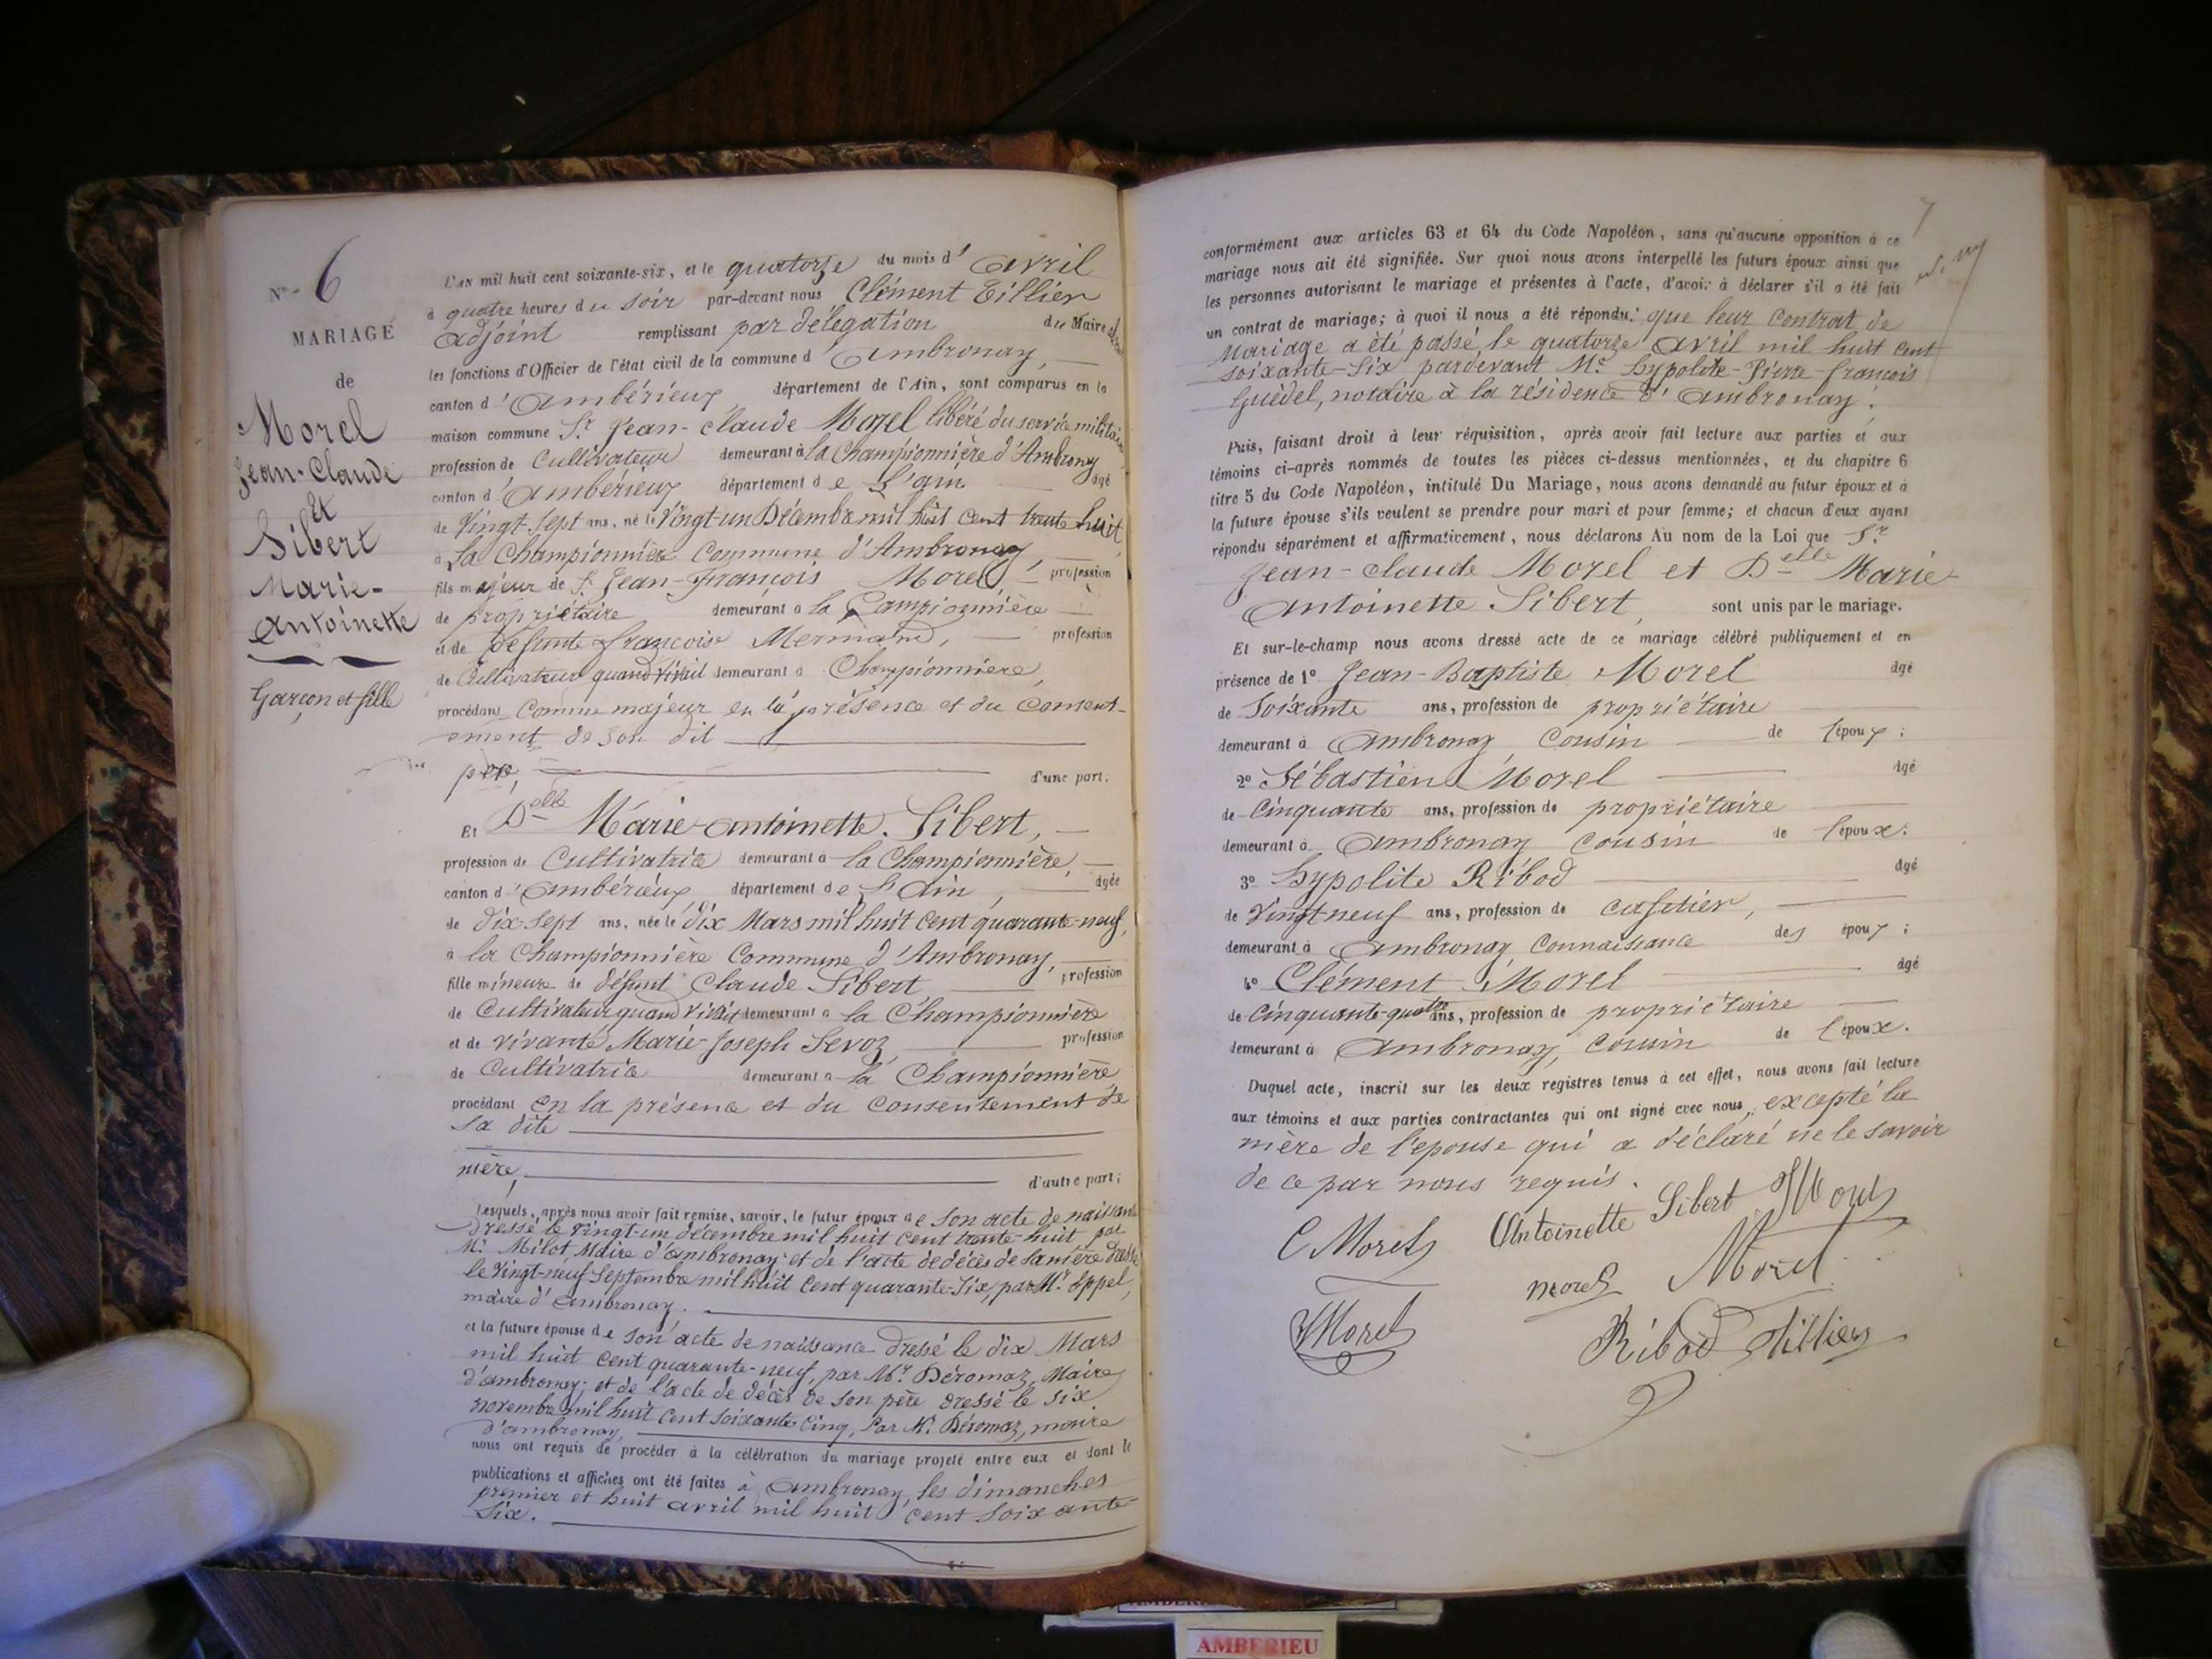 N° 6
MARIAGE
de
Morel
Jean-Claude
Et
Sibert
Marie-
Antoinette
Garçon et fille
L'AN mil huit cent soixante-six, et le quatorze du mois d'avril
à quatre heures du soir par-devant nous Clément Tillier
adjoint remplissant par délégation du Maire
les fonctions d'Officier de l'état civil de la commune d'Ambronay,
canton d'Ambérieux, département de l'Ain, sont comparus en la
maison commune Sr. Jean-Claude Morel libéré du service militaire
profession de Cultivateur demeurant à la Championnière d'Ambrony
canton d'Ambérieux département de L'ain âgé
de Vingt-Sept ans, né le Vingt-un Décembre mil huit cent trente huit,
à La Championnière Commune d'Ambronay,
fils majeur de Sr. Jean-François Morel, profession
de propriétaire demeurant à la Campionnière
et de Défunte françoise Mermand, profession
de Cultivateur quand vivait demeurant à Championniere,
procédant Comme majeur en la présence et du Consent-
ement de son dit
père, d'une part;
Et Delle Marie-antoinette Sibert,
profession de Cultivatrice demeurant à la Championnière,
canton d'ambérieux, département de L'Ain, âgée
de Dix-Sept ans, née le Dix Mars mil huit Cent quarante-neuf,
à la Championnière Commune d'Ambronay,
fille mineure de défunt Claude Sibert profession
de Cultivateur quand vivait demeurant à la Championnière
et de vivante Marie-Joseph Sevoz, profession
de Cultivatrice demeurant à la Championnière
procédant en la présence et du Consentement de
sa dite
mère, d'autre part;
Lesquels, après nous avoir fait remise, savoir, le futur époux de son acte de naissance
dressé le vingt-un décembre mil huit cent trente-huit par
Mr. Milot, Maire d'ambronay et de l'acte de décès de sa mère dressé
le Vingt-neuf Septembre mil huit Cent quarante-Six, par Mr. Eppel,
maire d'ambronay.
et la future épouse de son acte de naissance dressé le dix Mars
mil huit Cent quarante-neuf, par Mr. Déromaz, Maire
d'ambronay; et de l'acte de décès de son père dressé le six
novembre mil huit Cent soixante Cinq, Par Mr. Déromaz, maire
d'ambronay,
nous ont requis de procéder à la célébration du mariage projeté entre eux et dont le
publications et affiches ont été faites à Ambronay, les dimanches
premier et huit avril mil huit cent soixante-
Six.
7
conformément aux articles 63 et 64 du Code Napoléon, sans qu'aucune opposition à ce
mariage nous ait été signifiée. Sur quoi nous avons interpellé les futurs époux ainsi que
les personnes autorisant le mariage et présentes à l'acte, d'avoir à déclarer s'il a été fait
un contrat de mariage; à quoi il nous a été répondu: que leur Contrat de
Mariage a été passé le quatorze Avril mil huit Cent
soixante-Six pardevant Me. hypolite-Pierre-françois
Guédel, notaire à la résidence d'Ambronay.
Puis, faisant droit à leur réquisition, après avoir fait lecture aux parties et aux
témoins ci-après nommés de toutes les pièces ci-dessus mentionnées, et du chapitre 6
titre 5 du Code Napoléon, intitulé Du Mariage, nous avons demandé au futur époux et à
la future épouse s'ils veulent se prendre pour mari et pour femme; et chacun d'eux ayant
répondu séparément et affirmativement, nous déclarons Au nom de la Loi que Sr.
Jean-Claude Morel et Delle Marie-
Antoinette Sibert, sont unis par le mariage.
Et sur-le-champ nous avons dressé acte de ce mariage célébré publiquement et en
présence de 1° Jean-Baptiste Morel âgé
de Soixante ans, profession de propriétaire
demeurant à Ambronay Cousin de l'époux;
2° Sébastien Morel âgé
de Cinquante ans, profession de propriétaire
demeurant à Ambronay Cousin de l'époux.
3° hypolite Ribod âgé
de Vingt neuf ans, profession de Cafetier,
demeurant à Ambronay, Connaissance des époux;
4° Clément Morel âgé
de Cinquante-quatre ans, profession de propriétaire
demeurant à Ambronay, Cousin de l'époux.
Duquel acte, inscrit sur les deux registres tenus à cet effet, nous avons fait lecture
aux témoins et aux parties contractantes qui ont signé avec nous, excepté la
mère de l'épouse qui a déclaré ne le savoir
de ce par nous requis.
C Morel Antoinette Sibert Morel
morel Morel
Morel Ribod Tillier
AMBERIEU